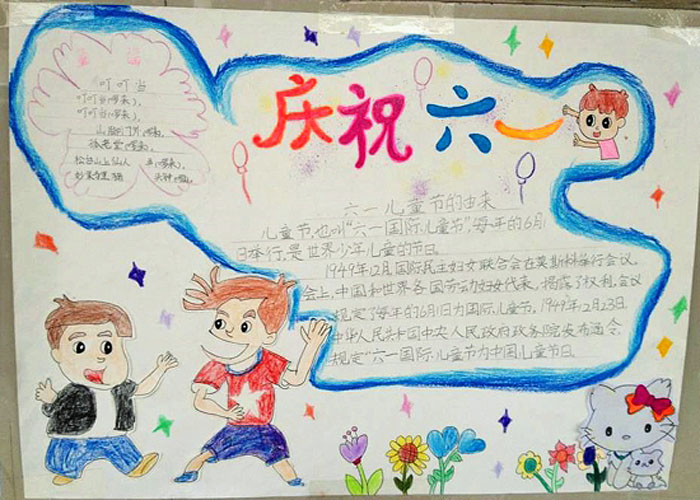 童谣
叮叮当
叮叮当(啰来),
叮叮当(啰来),
山脚门
庆祝六一
六一儿童节的由来
儿童节,也叫“六一国际儿童节”,每年的6月1
日举行,是世界少年儿童的节日。
1949年12月国际民主妇女联合会在莫斯科举行会议。
会上,中国和世界各国劳动妇女代表,揭露了权利。会议
规定了每年的6月1日为国际儿童节。1949年12月23日
中华人民共和国中央人民政府政务院发布通令,
规定“六一国际儿童节为中国儿童节日。